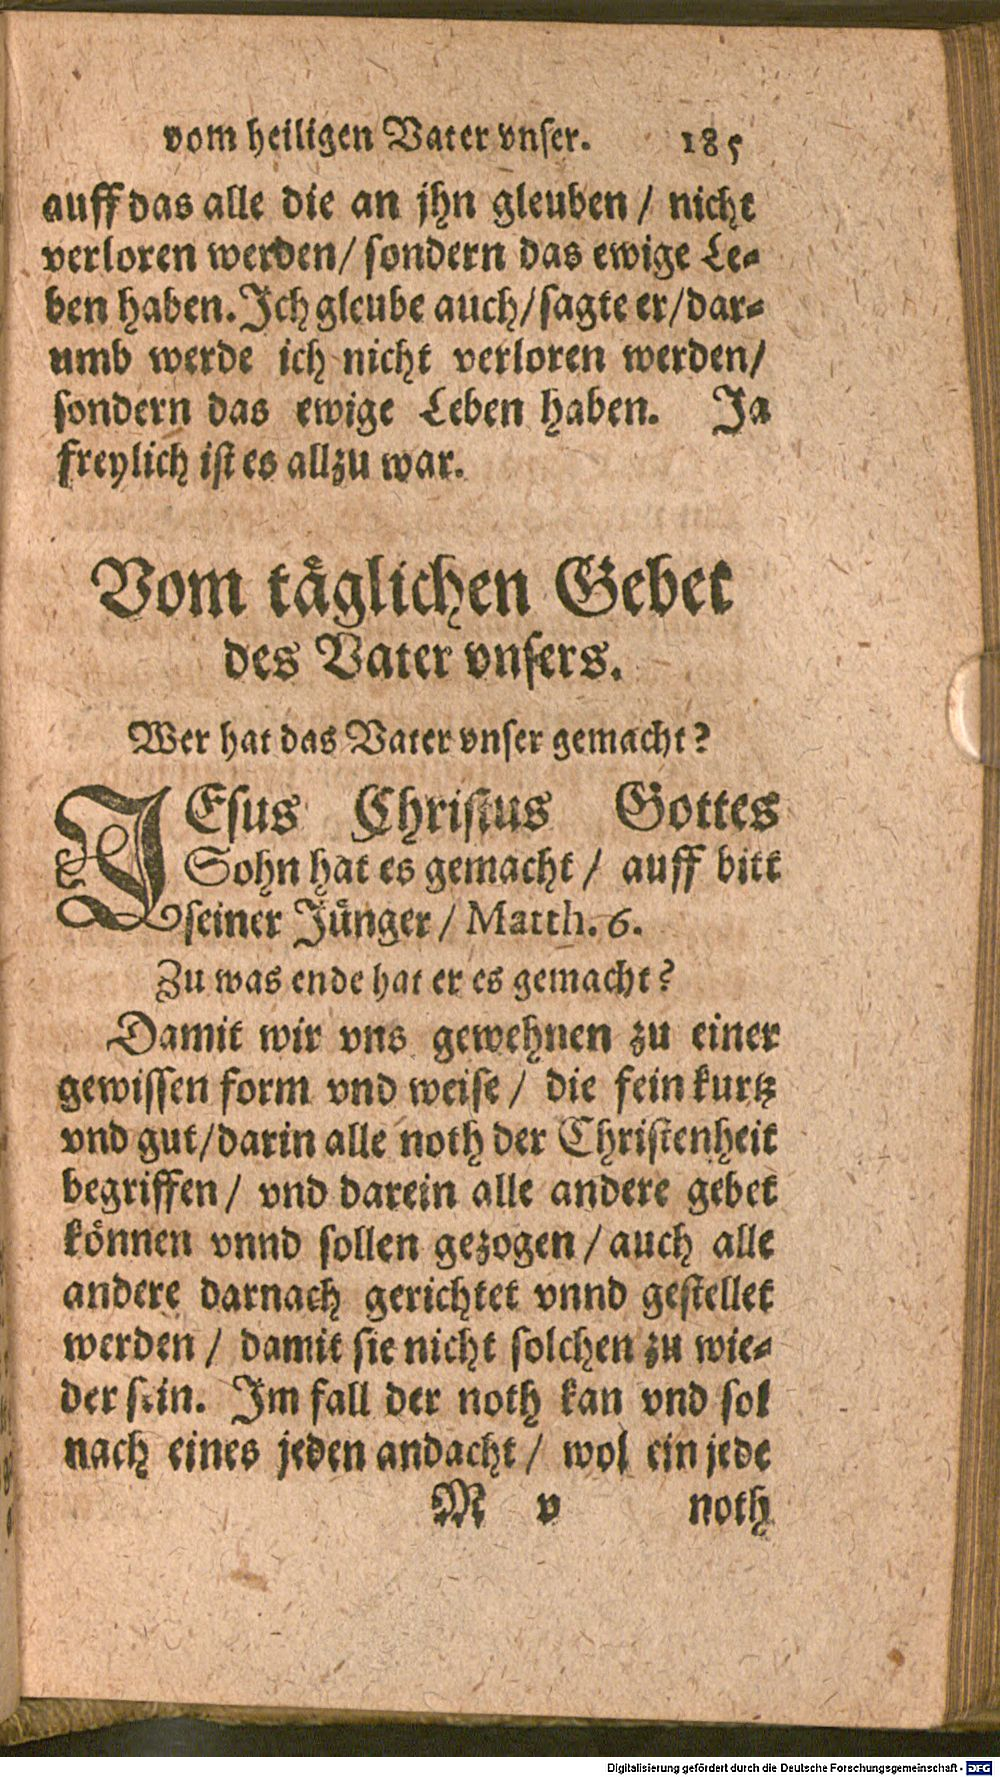 vom heiligen Vater vnser. 185
auff das alle die an jhn gleuben / nicht
verloren werden / sondern das ewige Le-
ben haben. Ich gleube auch / sagte er / dar-
umb werde ich nicht verloren werden /
sondern das ewige Leben haben. Ja
freylich ist es allzu war.
Vom täglichen Gebet
des Vater vnsers.
Wer hat das Vater vnser gemacht?
JEsus Christus Gottes
Sohn hat es gemacht / auff bitt
seiner Jünger / Matth. 6.
Zu was ende hat er es gemacht?
Damit wir vns gewehnen zu einer
gewissen form vnd weise / die fein kurtz
vnd gut / darin alle noth der Christenheit
begriffen / vnd darein alle andere gebet
können vnnd sollen gezogen / auch alle
andere darnach gerichtet vnnd gestellet
werden / damit sie nicht solchen zu wie-
der sein. Im fall der noth kan vnd sol
nach eines jeden andacht / wol ein jede
M v noth
Digitalisierung gefördert durch die Deutsche Forschungsgemeinschaft - DFG